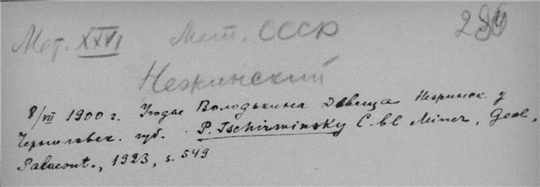 Мет. XXVI Мет. СССР
Нежинский
8/VII 1900 г. Угодье Володькина Девица Нежинск. у
Черниговск. губ. P. Tschirwinsky C.bl Miner, Geol,
Palaeont., 1923, s. 549